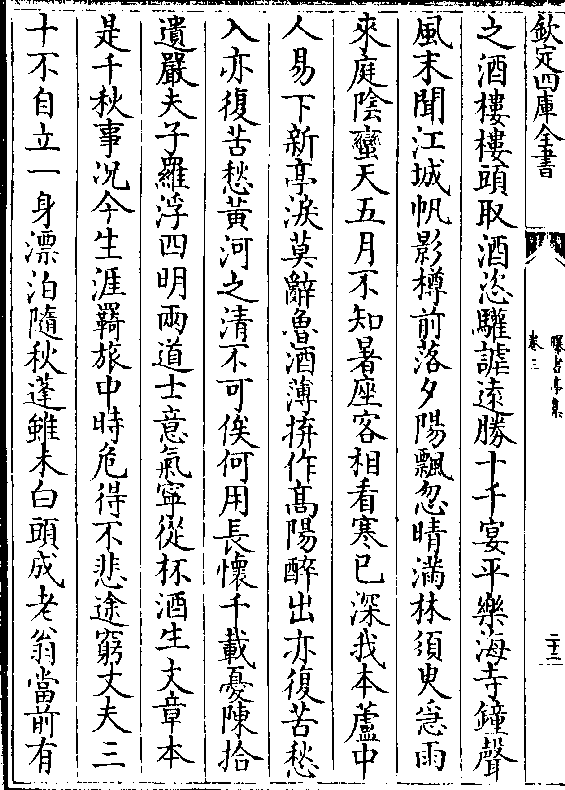 欽定四庫全書
曝書亭集
卷三
二十二
之酒樓樓頭取酒恣驩謔遠勝十千宴平樂海寺鐘聲
風末聞江城帆影樽前落夕陽飄忽晴滿林須臾愆雨
來庭陰蠻天五月不知暑座客相看寒已深我本蘆中
人易下新亭淚莫辭魯酒薄拚作髙陽醉出亦復苦愁
入亦復苦愁黃河之清不可俟何用長懷千載憂陳拾
遺嚴夫子羅浮四明兩道士意氣寧從杯酒生文章本
是千秋事况今生涯羇旅中時危得不悲途窮丈夫三
十不自立一身漂泊隨秋蓬雖未白頭成老翁當前有